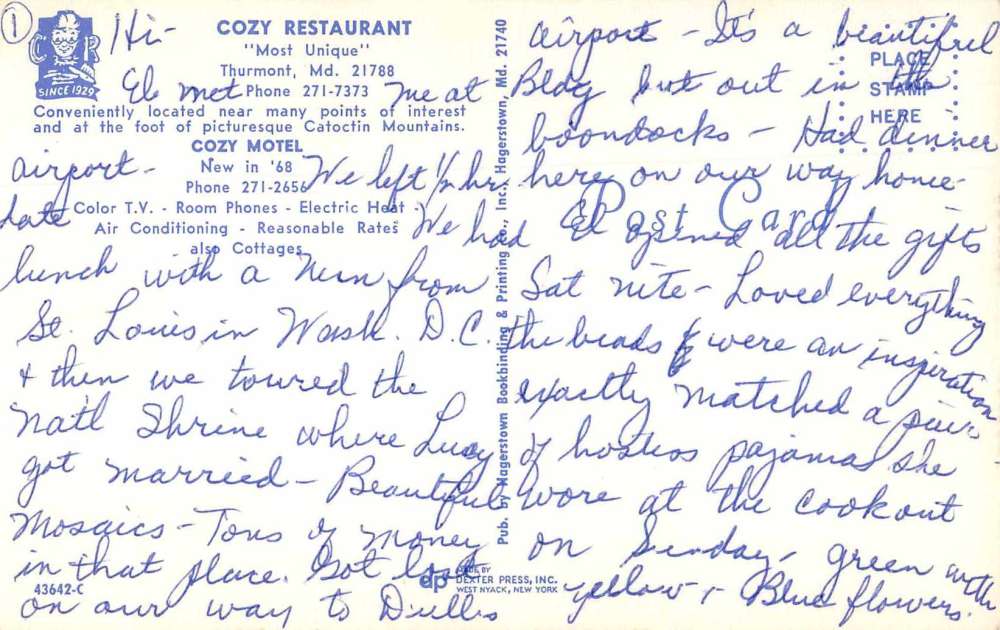 1
C R
SINCE 1929
COZY RESTAURANT
"Most Unique"
Thurmont, Md. 21788
Phone 271-7373
Conveniently located near many points of interest
and at the foot of picturesque Catoctin Mountains.
COZY MOTEL
New in '68
Phone 271-2656
Color T.V. - Room Phones - Electric Heat -
Air Conditioning - Reasonable Rates
also Cottages
Hi-
El met me at
airport-
We left 1/2 hr
late We had
lunch with a Nun from
St. Louis in Wash. D.C.
+ then we toured the
Nat'l Shrine where Lucy
got married - Beautiful
Mosaics - Tons of money
in that place. Got lost
on our way to Dulles
43642-C
Pub. by Hagerstown Bookbinding & Printing Co., Inc., Hagerstown, Md. 21740
MADE BY
dp DEXTER PRESS, INC.
WEST NYACK, NEW YORK
Post Card
PLACE
STAMP
HERE
airport - It's a beautiful
Bldg but out in the
boondocks - Had dinner
here on our way home-
El opened all the gifts
Sat nite - Loved everything
the beads were an inspiration
exactly matched a pair
of hostess pajamas she
wore at the cookout
on Sunday, green with
yellow + Blue flowers.